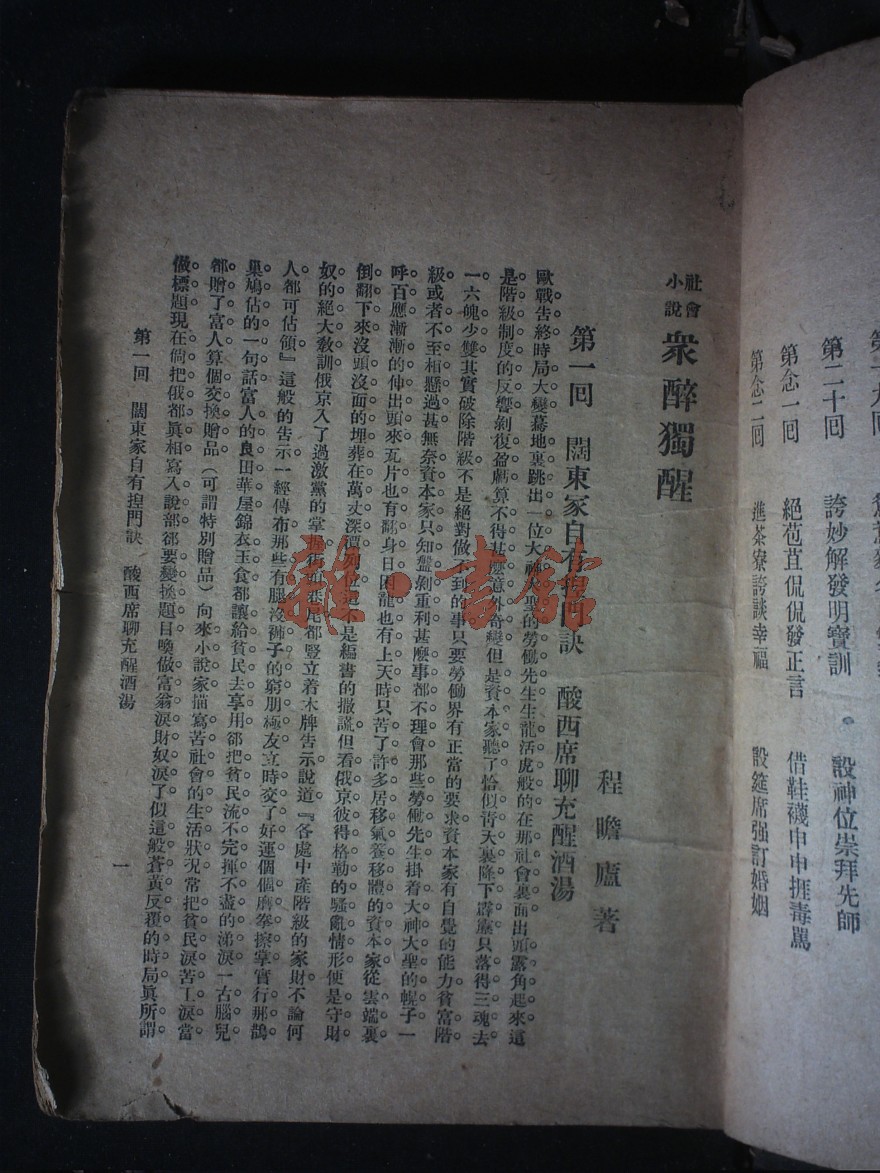 第二十回 誇妙解發明寶訓 設神位崇拜先師
第念一回 絕苞苴侃侃發正言 借鞋襪申申捱毒罵
第念二回 進茶寮誇談幸福 設筵席强訂婚姻
社會小說 衆醉獨醒
程瞻廬著
第一回 闊東家自有揑門訣 酸西席聊充醒酒湯
歐戰告終時局大變驀地裏跳出一位大神大聖的勞働先生生龍活虎般的在那社會裏面出頭露角起來這
是階級制度的反響剝復盈虧算不得甚麼意外奇變但是資本家聽了恰似靑天裏降下霹靂只落得三魂去
一六魄少雙其實破除階級不是絕對做不到的事只要勞働界有正當的要求資本家有自覺的能力貧富階
級或者不至相懸過甚無奈資本家只知盤剝重利甚麼事都不理會那些勞働先生掛着大神大聖的幌子一
呼百應漸漸的伸出頭來瓦片也有翻身日困龍也有上天時只苦了許多居移氣養移體的資本家從雲端裏
倒翻下來沒頭沒面的埋葬在萬丈深潭列位這不是編書的撒謊但看俄京彼得格勒的騷亂情形便是守財
奴的絕大敎訓俄京入了過激黨的掌握街頭巷尾都豎立着木牌告示說道『各處中產階級的家財不論何
人都可佔領』這般的告示一經傳布那些有腿沒褲子的窮朋極友立時交了好運個個磨拳擦掌實行那鵲
巢鳩佔的一句話富人的良田華屋錦衣玉食都讓給貧民去享用郤把貧民流不完揮不盡的涕淚一古腦兒
都贈了富人算個交換贈品(可謂特別贈品)向來小說家描寫苦社會的生活狀况常把貧民淚苦工淚當
做標題現在倘把俄都眞相寫入說部郤要變換題目喚做富翁淚財奴淚了似這般蒼黃反覆的時局眞所謂
第一回 闊東家自有揑門訣 酸西席聊充醒酒湯
一
雜·書館